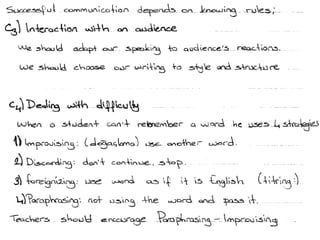 Successful communication depends on knowing rules;
C3) Interaction with an audience
We should adapt our speaking to audience's reactions.
We should choose our writing to style and structure
C4) Dealing with difficulty
When a student can't remember a word he uses 4 strategies
1) Improvising: (doğaçlama) use another word.
2) Discarding: don't continue, stop.
3) foreignizing: use word as if it is English
4) Paraphrasing: not using the word and pass it.
Teachers should encourage Paraphrasing - Improvising